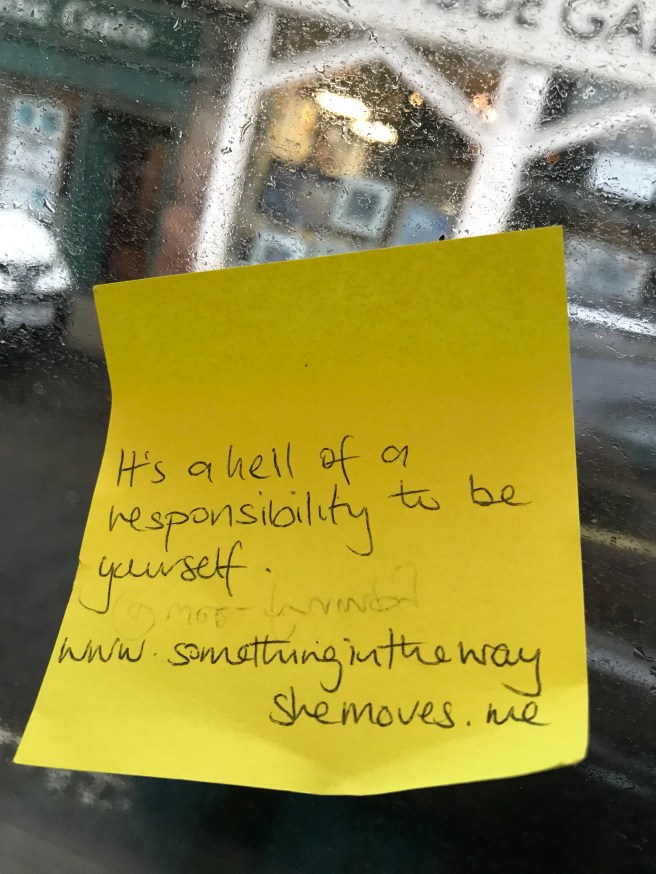 GA
It's a hell of a
responsibility to be
yourself.
www.somethingintheway
shemoves.me